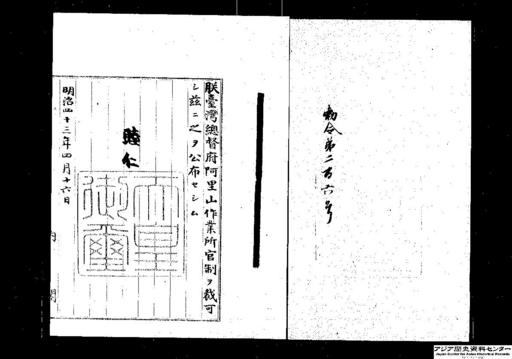 勅令第二百六号
朕臺灣總督府阿里山作業所官制ヲ裁可
シ茲ニ之ヲ公布セシム
睦仁
御璽
明治四十三年四月十六日
内閣
アジア歴史資料センター
Japan Center for Asian Historical Records